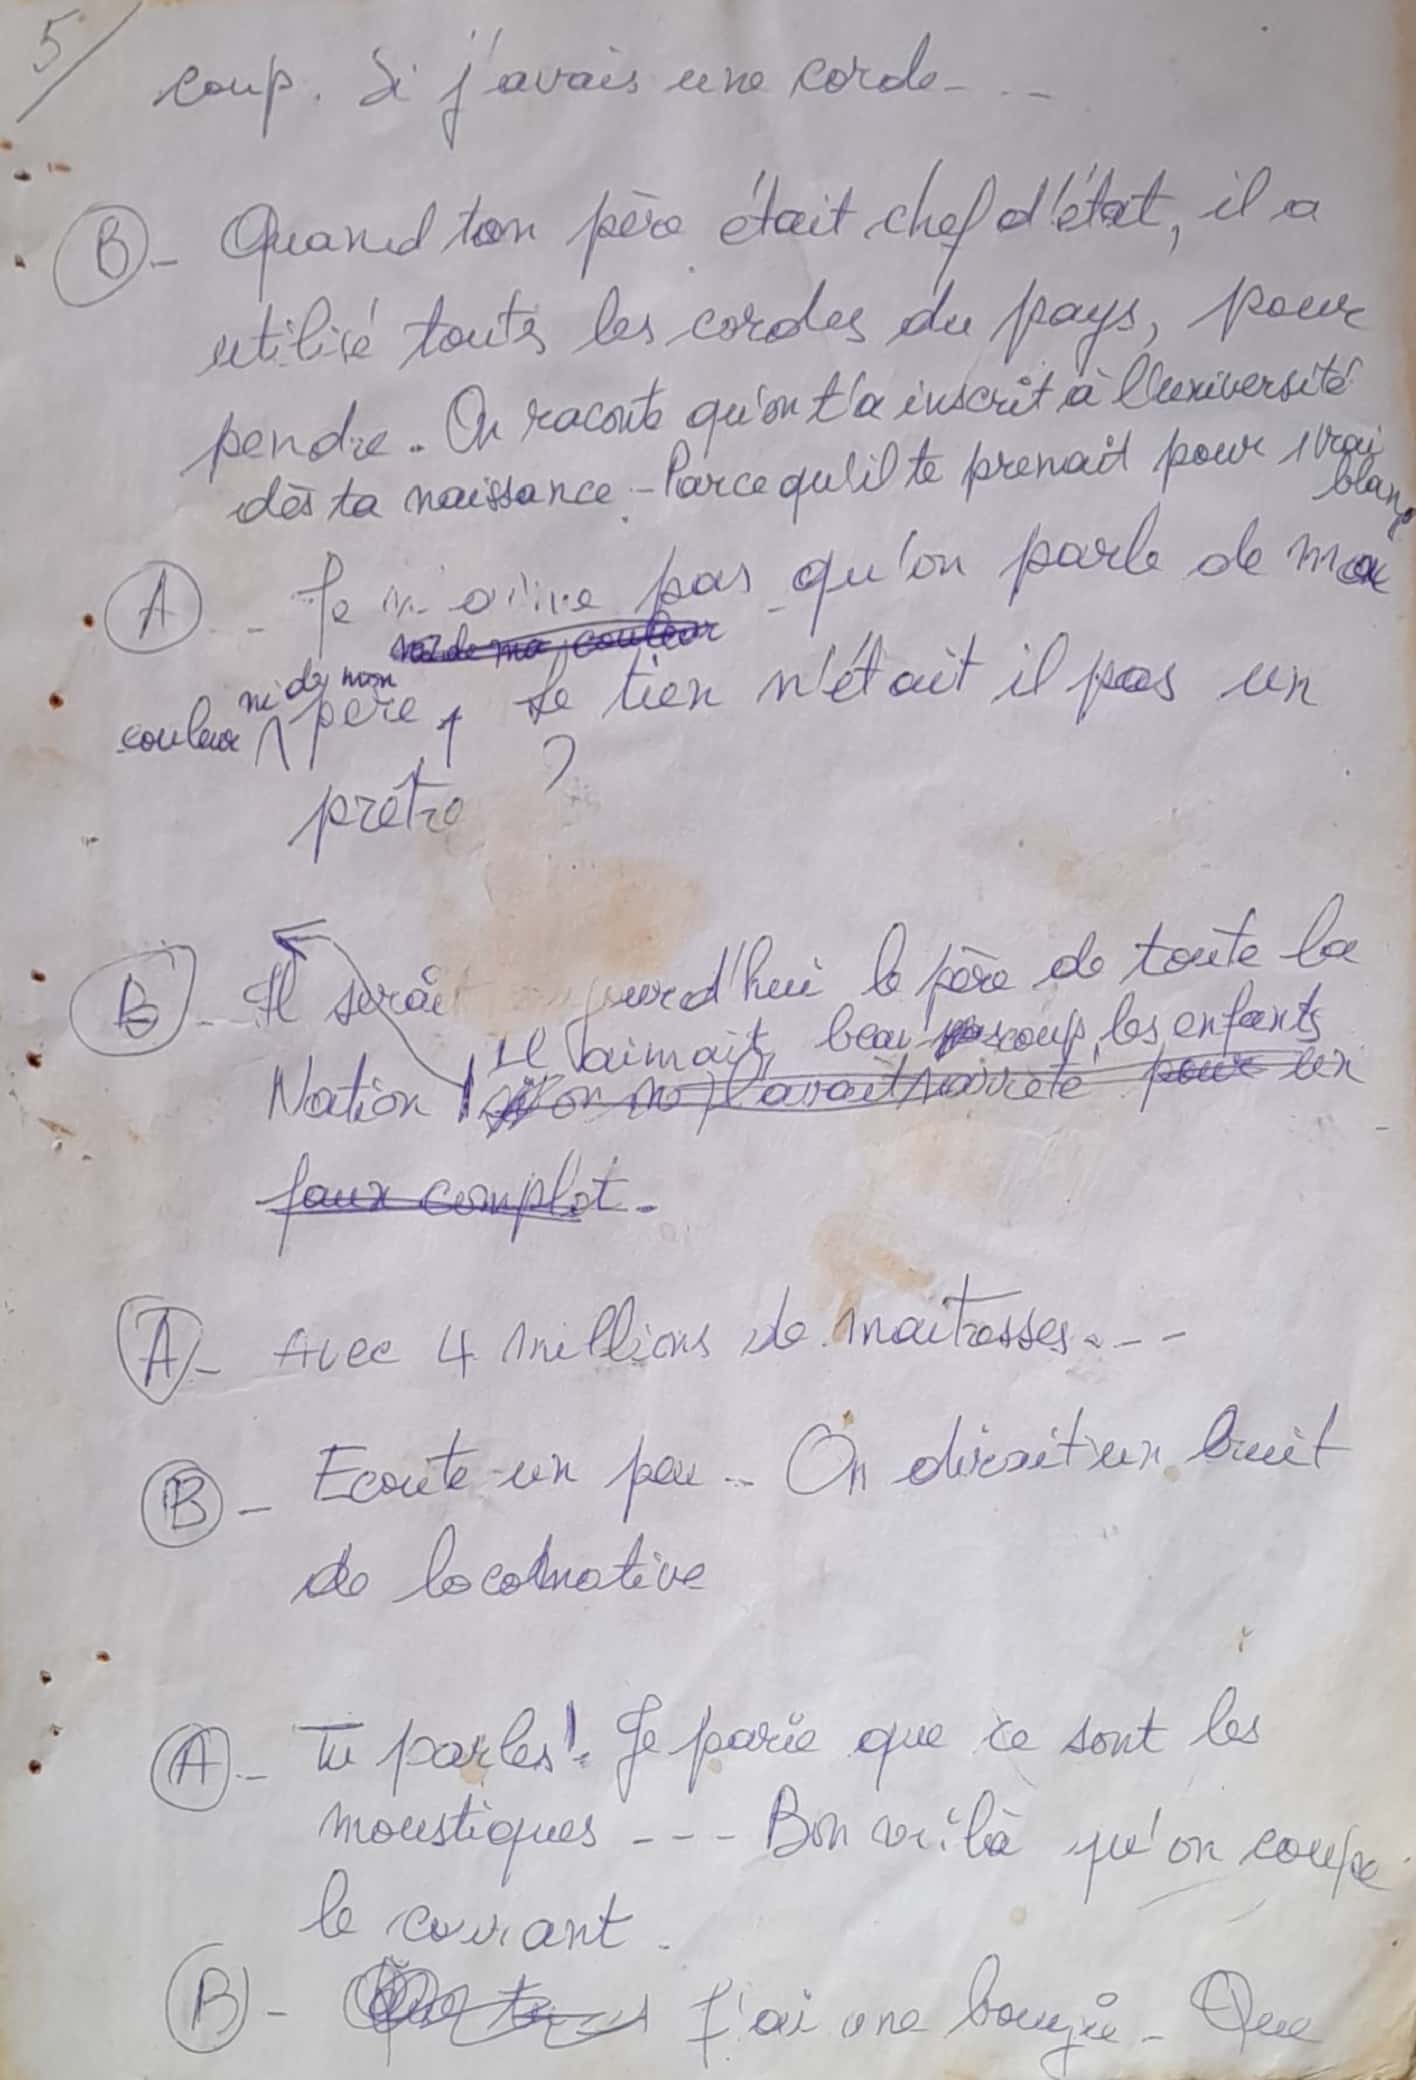 5/
coup. Si j'avais une corde - . . -
B - Quand ton père était chef d'état, il a
utilisé toutes les cordes du pays, pour
pendre. On raconte qu'on t'a inscrit à l'université
dès ta naissance - Parce qu'il te prenait pour 1 vrai
blanc
A - Je n'aime pas qu'on parle de ma
ni de ma couleur
couleur ni de mon père, le tien n'était il pas un
prêtre ?
B - Il serait aujourd'hui le père de toute la
Il aimait beaucoup les enfants
Nation ! si on ne l'avait arrêté pour un
faux complot -
A - Avec 4 millions de maitresses - - -
B - Ecoute un peu .. On dirait un bruit
de locomotive
A - Tu parles ! Je parie que ce sont les
moustiques - - - Bon voilà qu'on coupe
le courant .
B - J'ai une bougie - Que